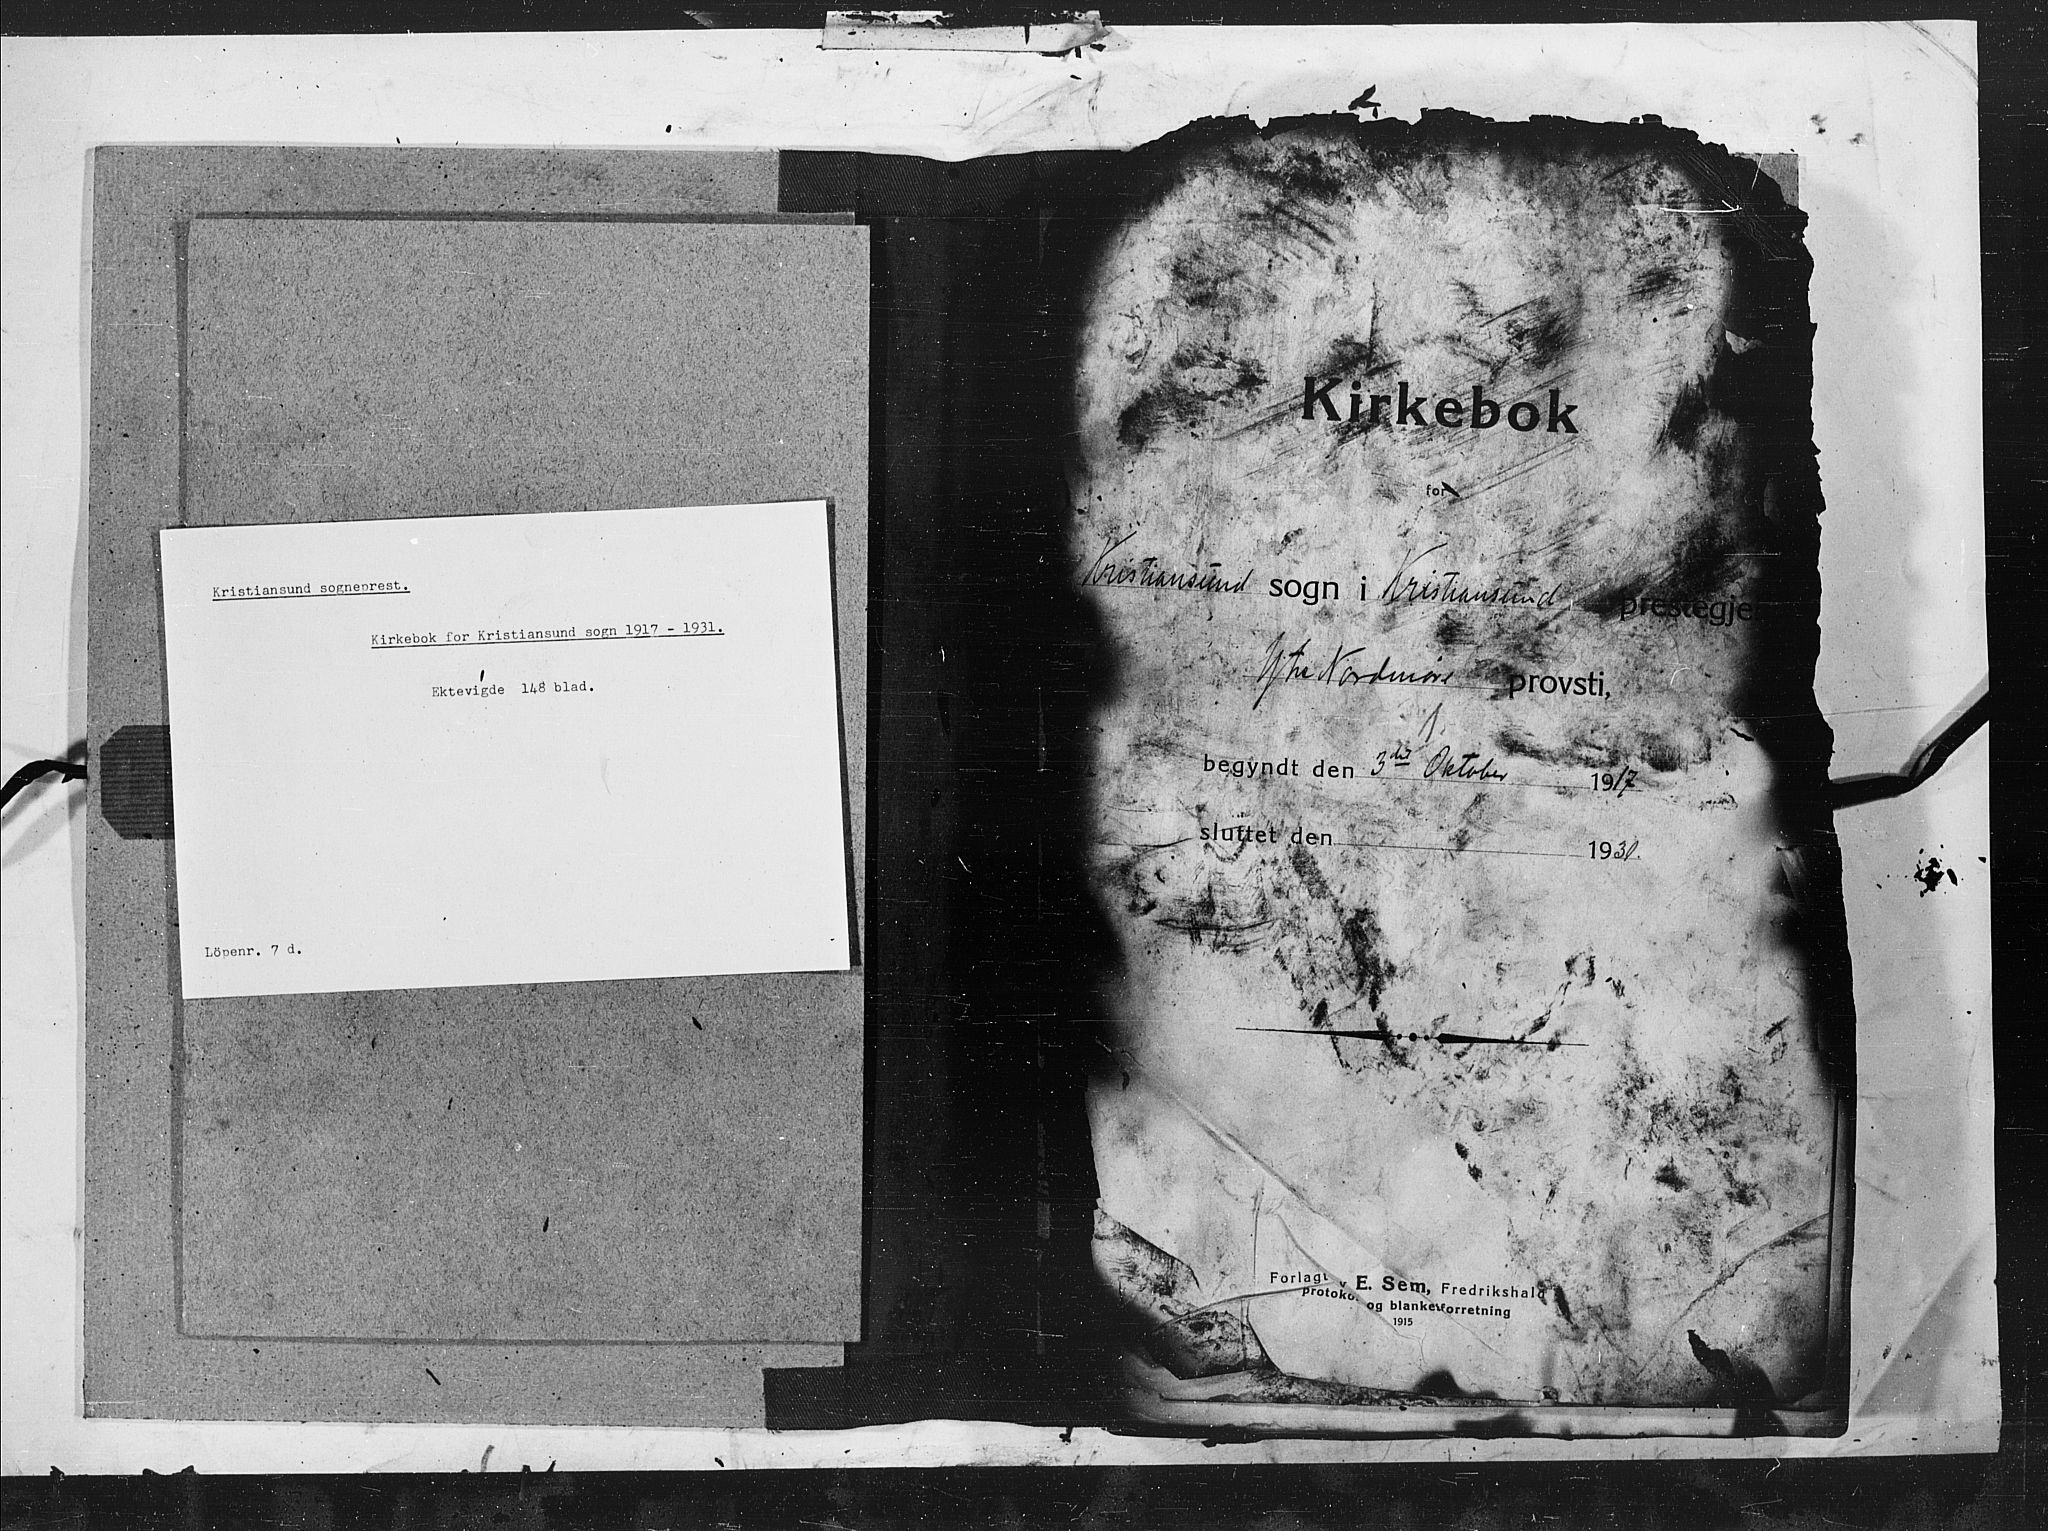 Kristiansund sogneprest.
Kirkebok for Kristiansund sogn 1917 - 1931.
Ektevigde 148 blad.
Löpenr. 7 d.
Kirkebok
for
Kristiansund sogn i Kristiansund prestegje
Ytre Nordmøre provsti,
begyndt den 3die Oktober 1917
sluttet den 1931.
Forlagt v E. Sem, Fredrikshald
protokol og blanketforretning
1915